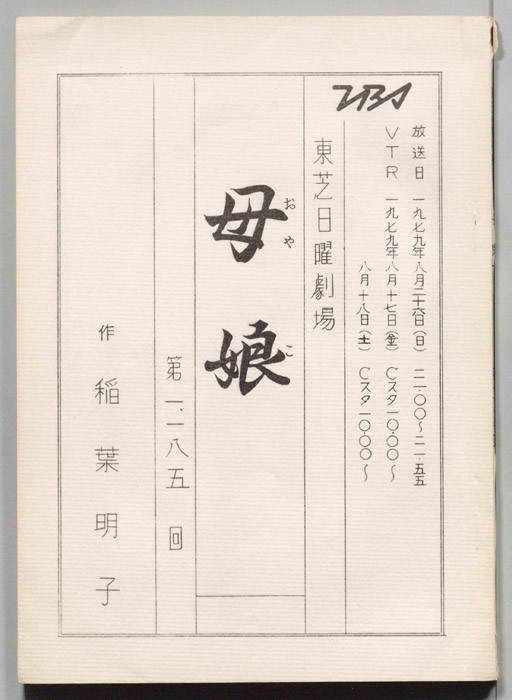 TBS
放送日 一九七九年八月二十六日(日) 二一・〇〇〜二一・五五
VTR 一九七九年八月十七日(金) Cスタ 一〇・〇〇〜
八月十八日(土) Cスタ 一〇・〇〇〜
東芝日曜劇場
母娘
おやこ
第一、一八五回
作 稲葉明子